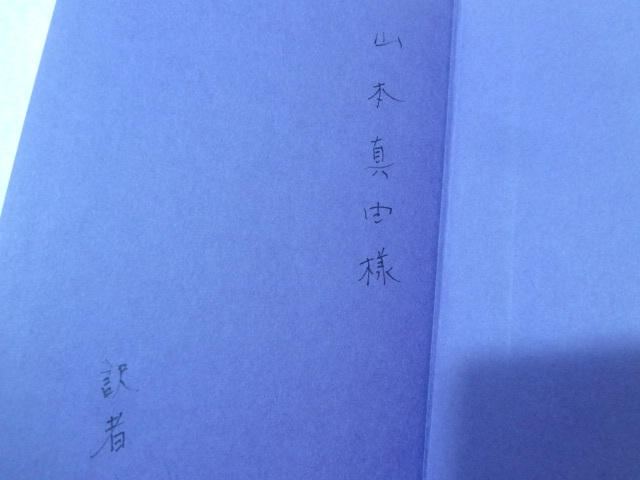 山本真由様
訳者